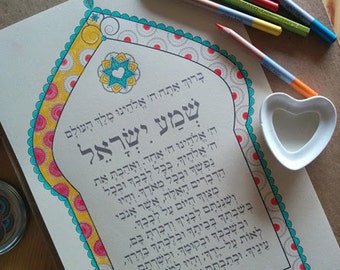 ברוך אתה ה' אלהינו מלך העולם
שמע ישראל
ה' אלהינו ה' אחד, ואהבת את
ה' אלהיך, בכל לבבך ובכל
נפשך ובכל מאדך והיו
הדברים האלה אשר אנכי
היום על לבבך
ושננתם לבניך ודברת בם,
בשבתך בביתך ובלכתך
ובשכבך ובקומך וקשרתם
לאות על ידך והיו
עיניך